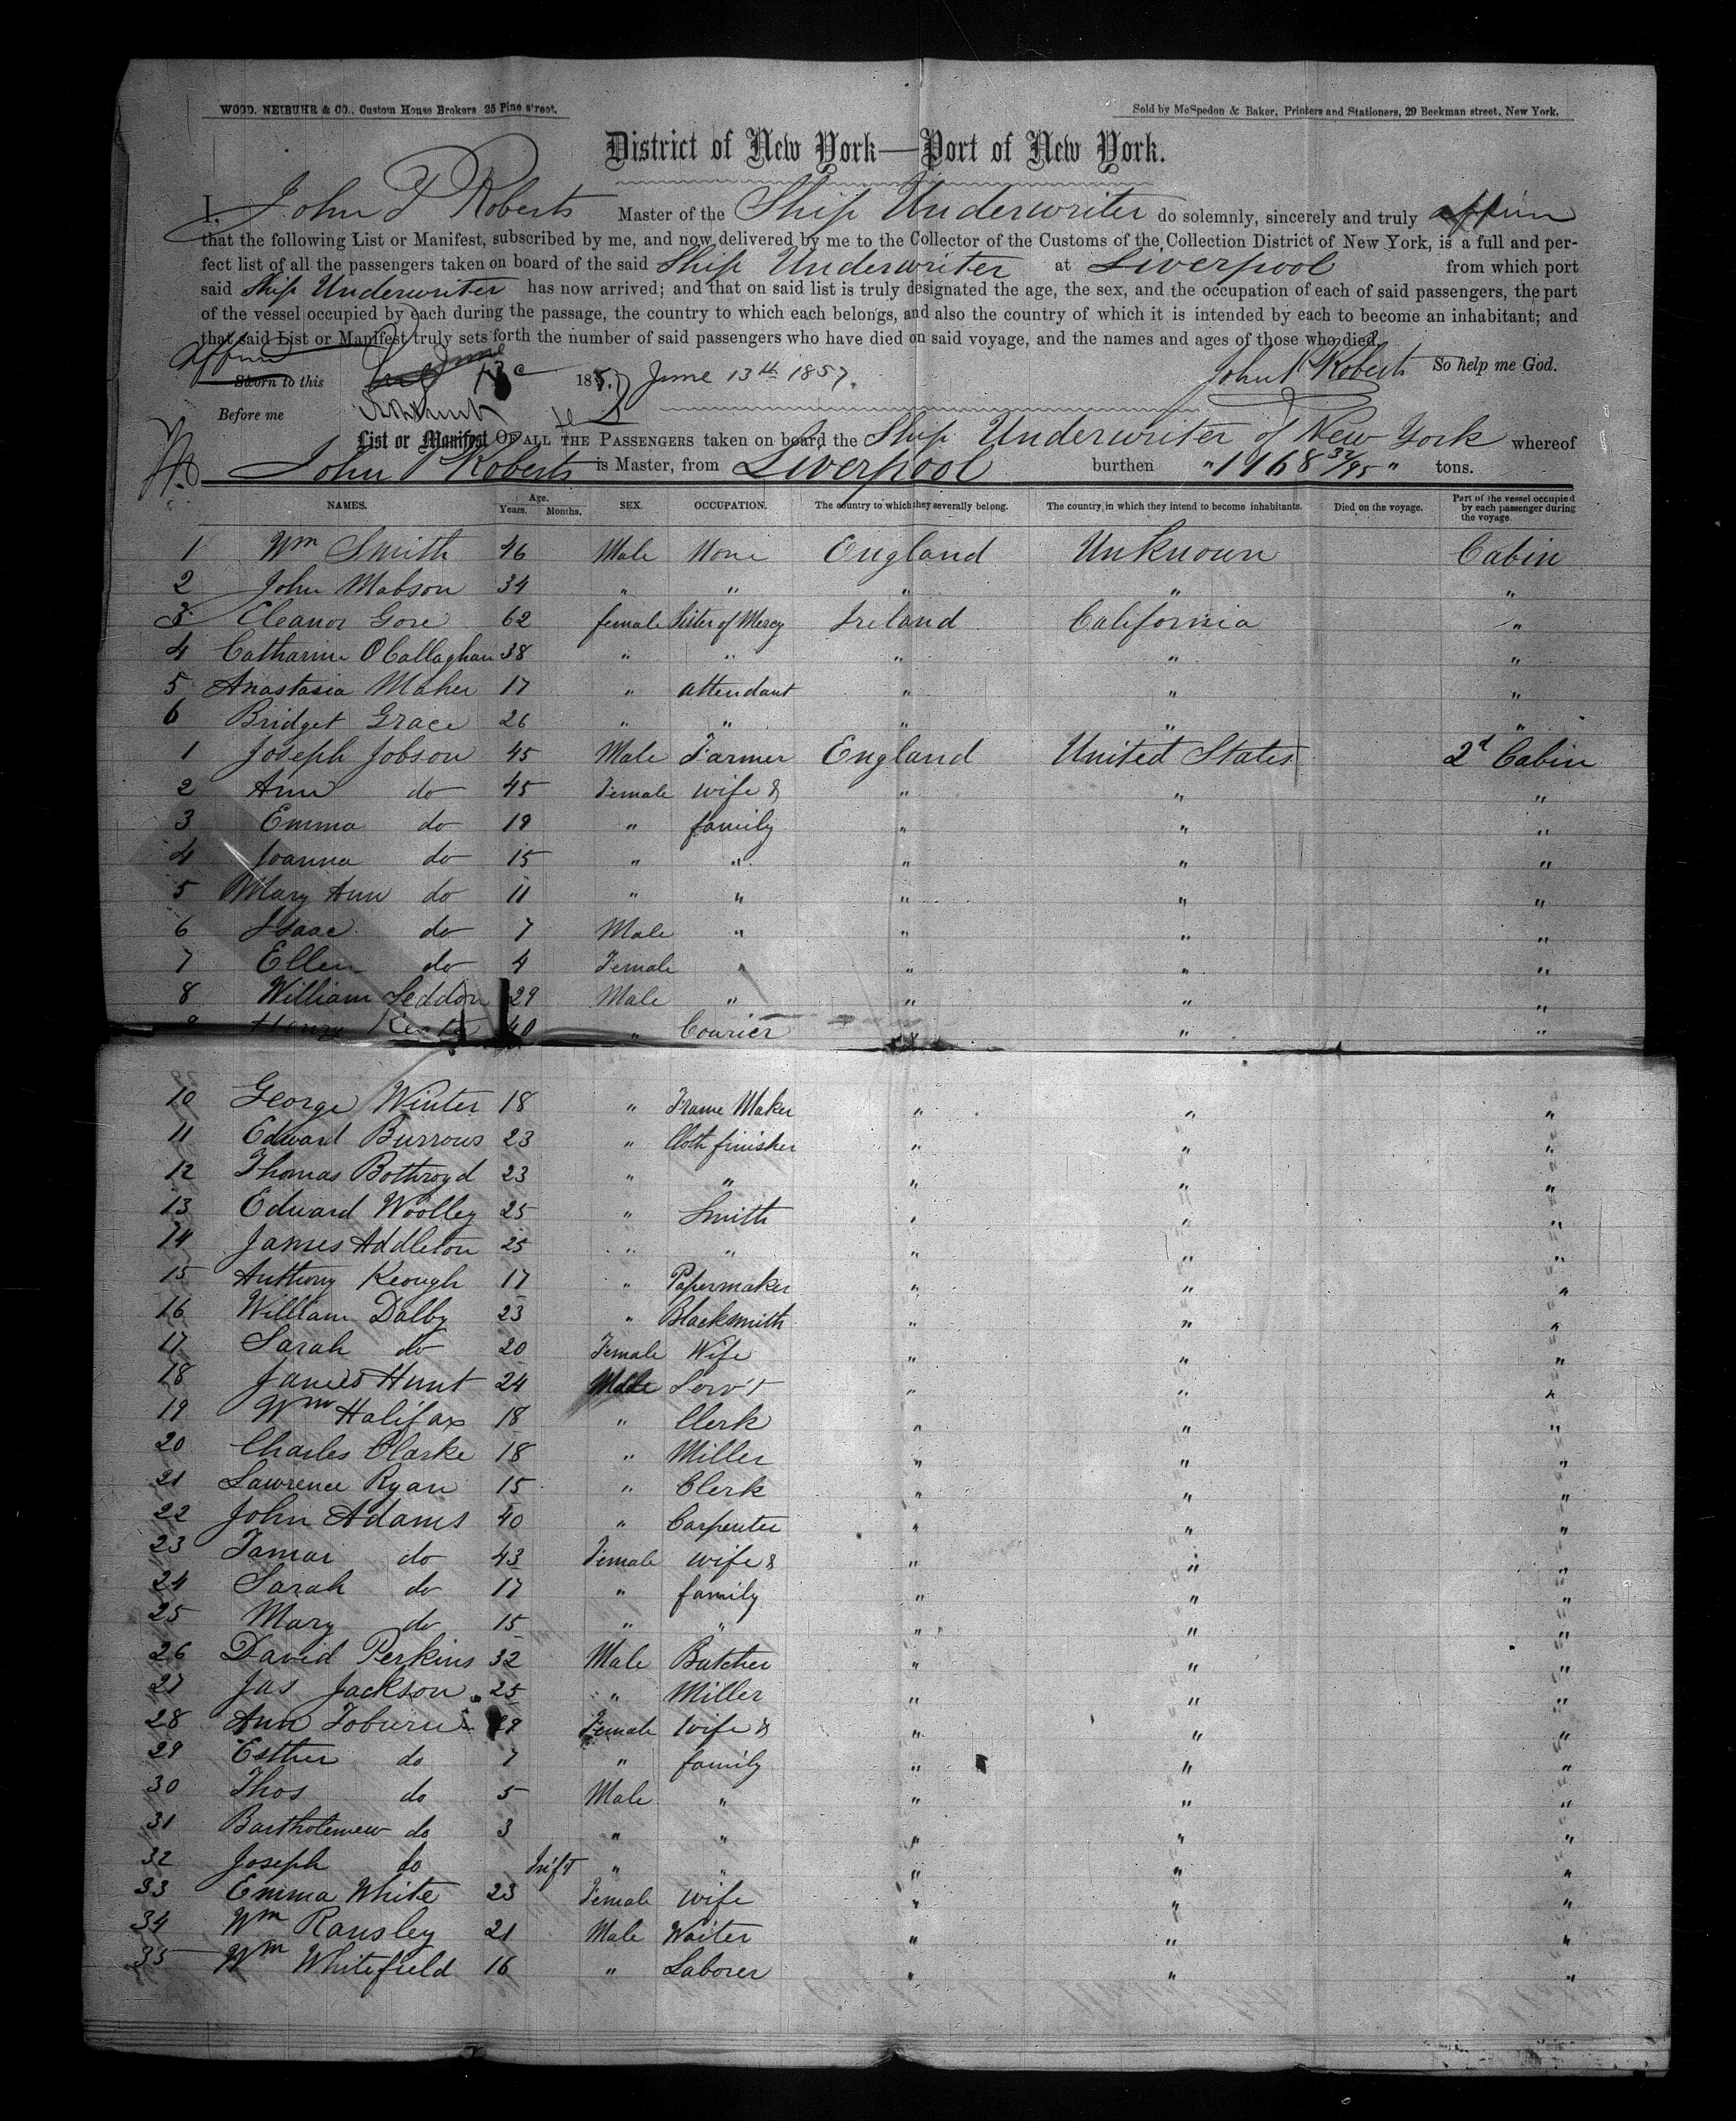 WOOD, NEIBUHR & CO., Custom House Brokers 25 Pine street.
Sold by McSpedon & Baker, Printers and Stationers, 29 Beekman street, New York.
District of New York—Port of New York.
I, John P Roberts Master of the Ship Underwriter do solemnly, sincerely and truly affirm
that the following List or Manifest, subscribed by me, and now delivered by me to the Collector of the Customs of the Collection District of New York, is a full and per-
fect list of all the passengers taken on board of the said Ship Underwriter at Liverpool from which port
said Ship Underwriter has now arrived; and that on said list is truly designated the age, the sex, and the occupation of each of said passengers, the part
of the vessel occupied by each during the passage, the country to which each belongs, and also the country of which it is intended by each to become an inhabitant; and
that said List or Manifest truly sets forth the number of said passengers who have died on said voyage, and the names and ages of those who died.
affirm
Sworn to this June 13 1857 June 13th 1857. John P Roberts So help me God.
Before me
List or Manifest OF ALL THE PASSENGERS taken on board the Ship Underwriter of New York whereof
John P Roberts is Master, from Liverpool burthen "1168 32/95" tons.
NAMES. Age. Years. Months. SEX. OCCUPATION. The country to which they severally belong. The country in which they intend to become inhabitants. Died on the voyage. Part of the vessel occupied by each passenger during the voyage.
1 Wm Smith 46 Male None England Unknown Cabin
2 John Mabson 34 " " " " "
3 Eleanor Gore 62 female Sister of Mercy Ireland California "
4 Catharine O Callaghan 38 " " " " "
5 Anastasia Maher 17 " attendant " " "
6 Bridget Grace 26 " " " " "
1 Joseph Jobson 45 Male Farmer England United States 2d Cabin
2 Ann do 45 Female wife & " " "
3 Emma do 19 " family " " "
4 Joanna do 15 " " " " "
5 Mary Ann do 11 " " " " "
6 Isaac do 7 Male " " " "
7 Ellen do 4 Female " " " "
8 William Seddon 29 Male " " " "
9 Henry 40 " Courier " " "
10 George Winter 18 " Frame Maker " " "
11 Edward Burrows 23 " Cloth finisher " " "
12 Thomas Bothroyd 23 " " " " "
13 Edward Woolley 25 " Smith " " "
14 James Addleton 25 " " " " "
15 Anthony Keough 17 " Papermaker " " "
16 William Dalby 23 " Blacksmith " " "
17 Sarah do 20 Female Wife " " "
18 James Hunt 24 Male Serv't " " "
19 Wm Halifax 18 " Clerk " " "
20 Charles Clarke 18 " Miller " " "
21 Lawrence Ryan 15 " Clerk " " "
22 John Adams 40 " Carpenter " " "
23 Tamar do 43 Female wife & " " "
24 Sarah do 17 " family " " "
25 Mary do 15 " " " " "
26 David Perkins 32 Male Butcher " " "
27 Jas Jackson 25 " Miller " " "
28 Ann Toburn 29 Female wife & " " "
29 Esther do 7 " family " " "
30 Thos do 5 Male " " " "
31 Bartholemew do 3 " " " " "
32 Joseph do Inft " " " " "
33 Emma White 23 Female wife " " "
34 Wm Ransley 21 Male Waiter " " "
35 Wm Whitefield 16 " Laborer " " "